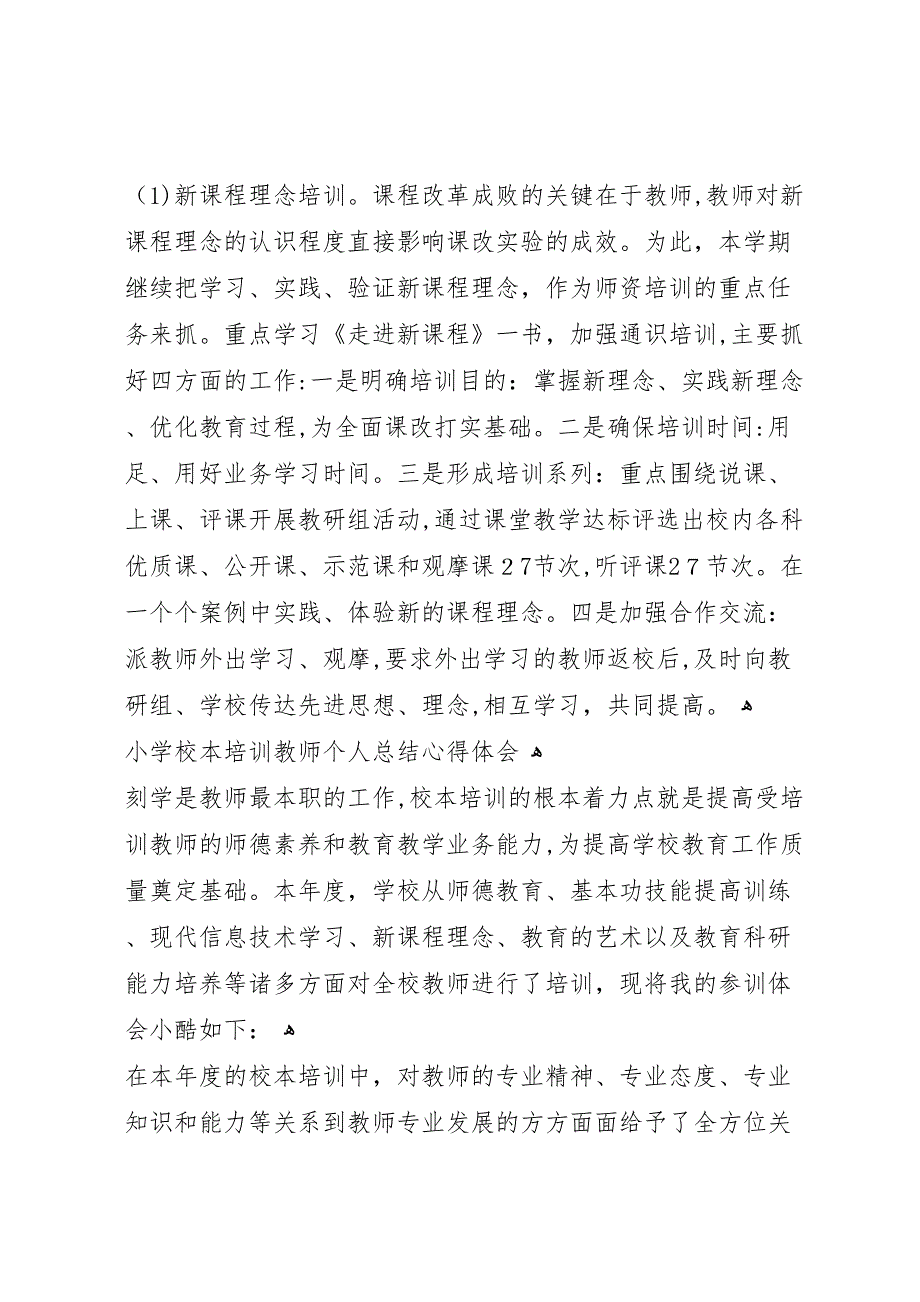 （1)新课程理念培训。课程改革成败的关键在于教师,教师对新
课程理念的认识程度直接影响课改实验的成效。为此，本学期
继续把学习、实践、验证新课程理念，作为师资培训的重点任
务来抓。重点学习《走进新课程》一书，加强通识培训,主要抓
好四方面的工作:一是明确培训目的：掌握新理念、实践新理念
、优化教育过程,为全面课改打实基础。二是确保培训时间:用
足、用好业务学习时间。三是形成培训系列：重点围绕说课、
上课、评课开展教研组活动,通过课堂教学达标评选出校内各科
优质课、公开课、示范课和观摩课２7节次,听评课2７节次。在
一个个案例中实践、体验新的课程理念。四是加强合作交流：
派教师外出学习、观摩,要求外出学习的教师返校后,及时向教
研组、学校传达先进思想、理念,相互学习，共同提高。 ﻫ
小学校本培训教师个人总结心得体会 ﻫ
刻学是教师最本职的工作,校本培训的根本着力点就是提高受培
训教师的师德素养和教育教学业务能力,为提高学校教育工作质
量奠定基础。本年度，学校从师德教育、基本功技能提高训练
、现代信息技术学习、新课程理念、教育的艺术以及教育科研
能力培养等诸多方面对全校教师进行了培训，现将我的参训体
会小酷如下： ﻫ
在本年度的校本培训中，对教师的专业精神、专业态度、专业
知识和能力等关系到教师专业发展的方方面面给予了全方位关